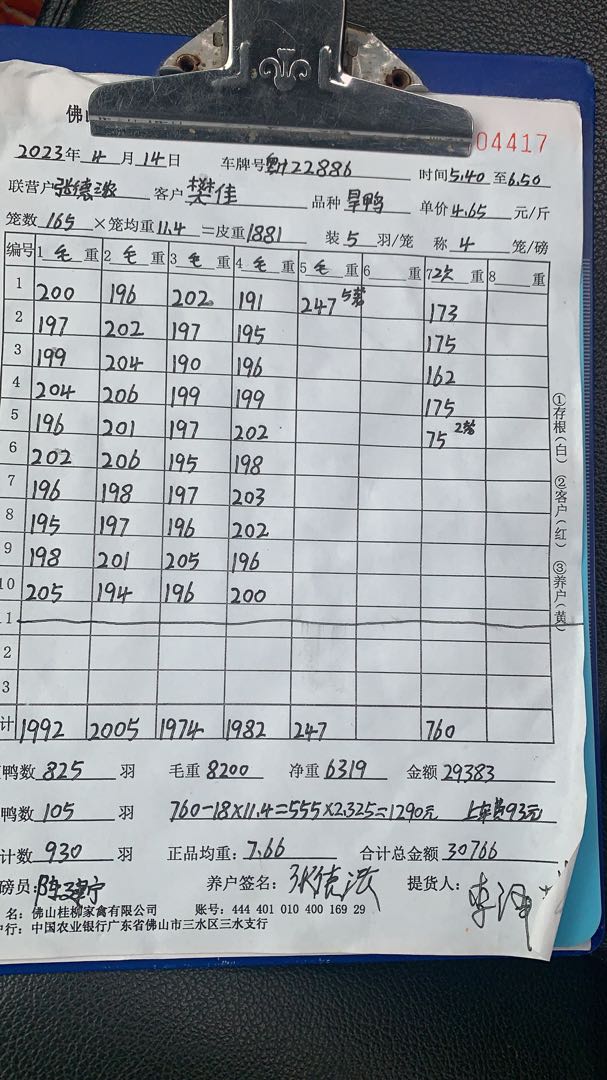 佛山
04417
2023年 4 月 14日 车牌号 22886 时间5.40 至6.50
联营户 张德 客户 樊佳 品种 旱鸭 单价4.65 元/斤
笼数 165 ×笼均重11.4 =皮重1881 装 5 羽/笼 称 4 笼/磅
编号 1 毛 重 2 毛 重 3 毛 重 4 毛 重 5 毛 重 6 重 7 次 重 8 重
1 200 196 202 191 247 5笼 173
2 197 202 197 195 175
3 199 204 190 196 162
4 204 206 199 199 175
5 196 201 197 202 75 2笼
6 202 206 195 198
7 196 198 197 203
8 195 197 196 202
9 198 201 205 196
10 205 194 196 200
1
2
3
计 1992 2005 1974 1982 247 760
鸭数 825 羽 毛重 8200 净重 6319 金额 29383
鸭数 105 羽 760-18×11.4=555×2.325=1290元 上车费93元
计数 930 羽 正品均重: 7.66 合计总金额 30766
磅员: 养户签名: 张德 提货人: 李
名: 佛山桂柳家禽有限公司 账号: 444 401 010 400 169 29
行: 中国农业银行广东省佛山市三水区三水支行
①存根(白) ②客户(红) ③养户(黄)